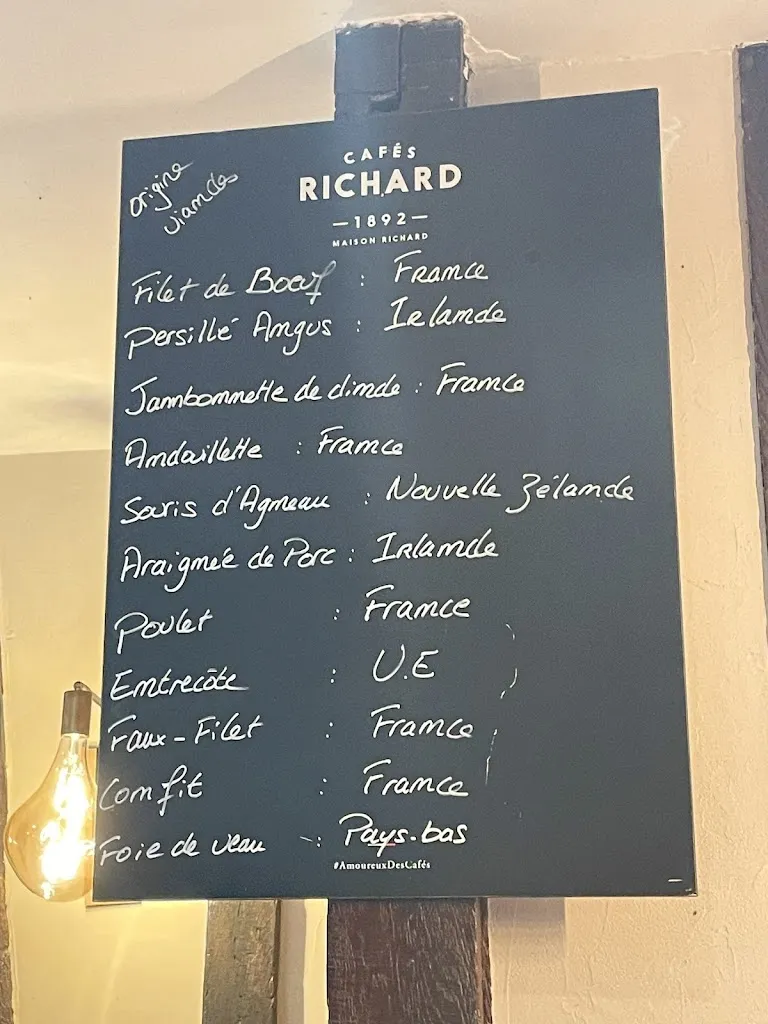 CAFÉS
RICHARD
—1892—
MAISON RICHARD
origine
viandes
Filet de Boeuf : France
Persillé Angus : Irlande
Jambonnette de dinde : France
Andouillette : France
Souris d'Agneau : Nouvelle Zélande
Araignée de Porc : Irlande
Poulet : France
Entrecôte : U.E
Faux-Filet : France
Confit : France
Foie de veau : Pays-bas
#AmoureuxDesCafés